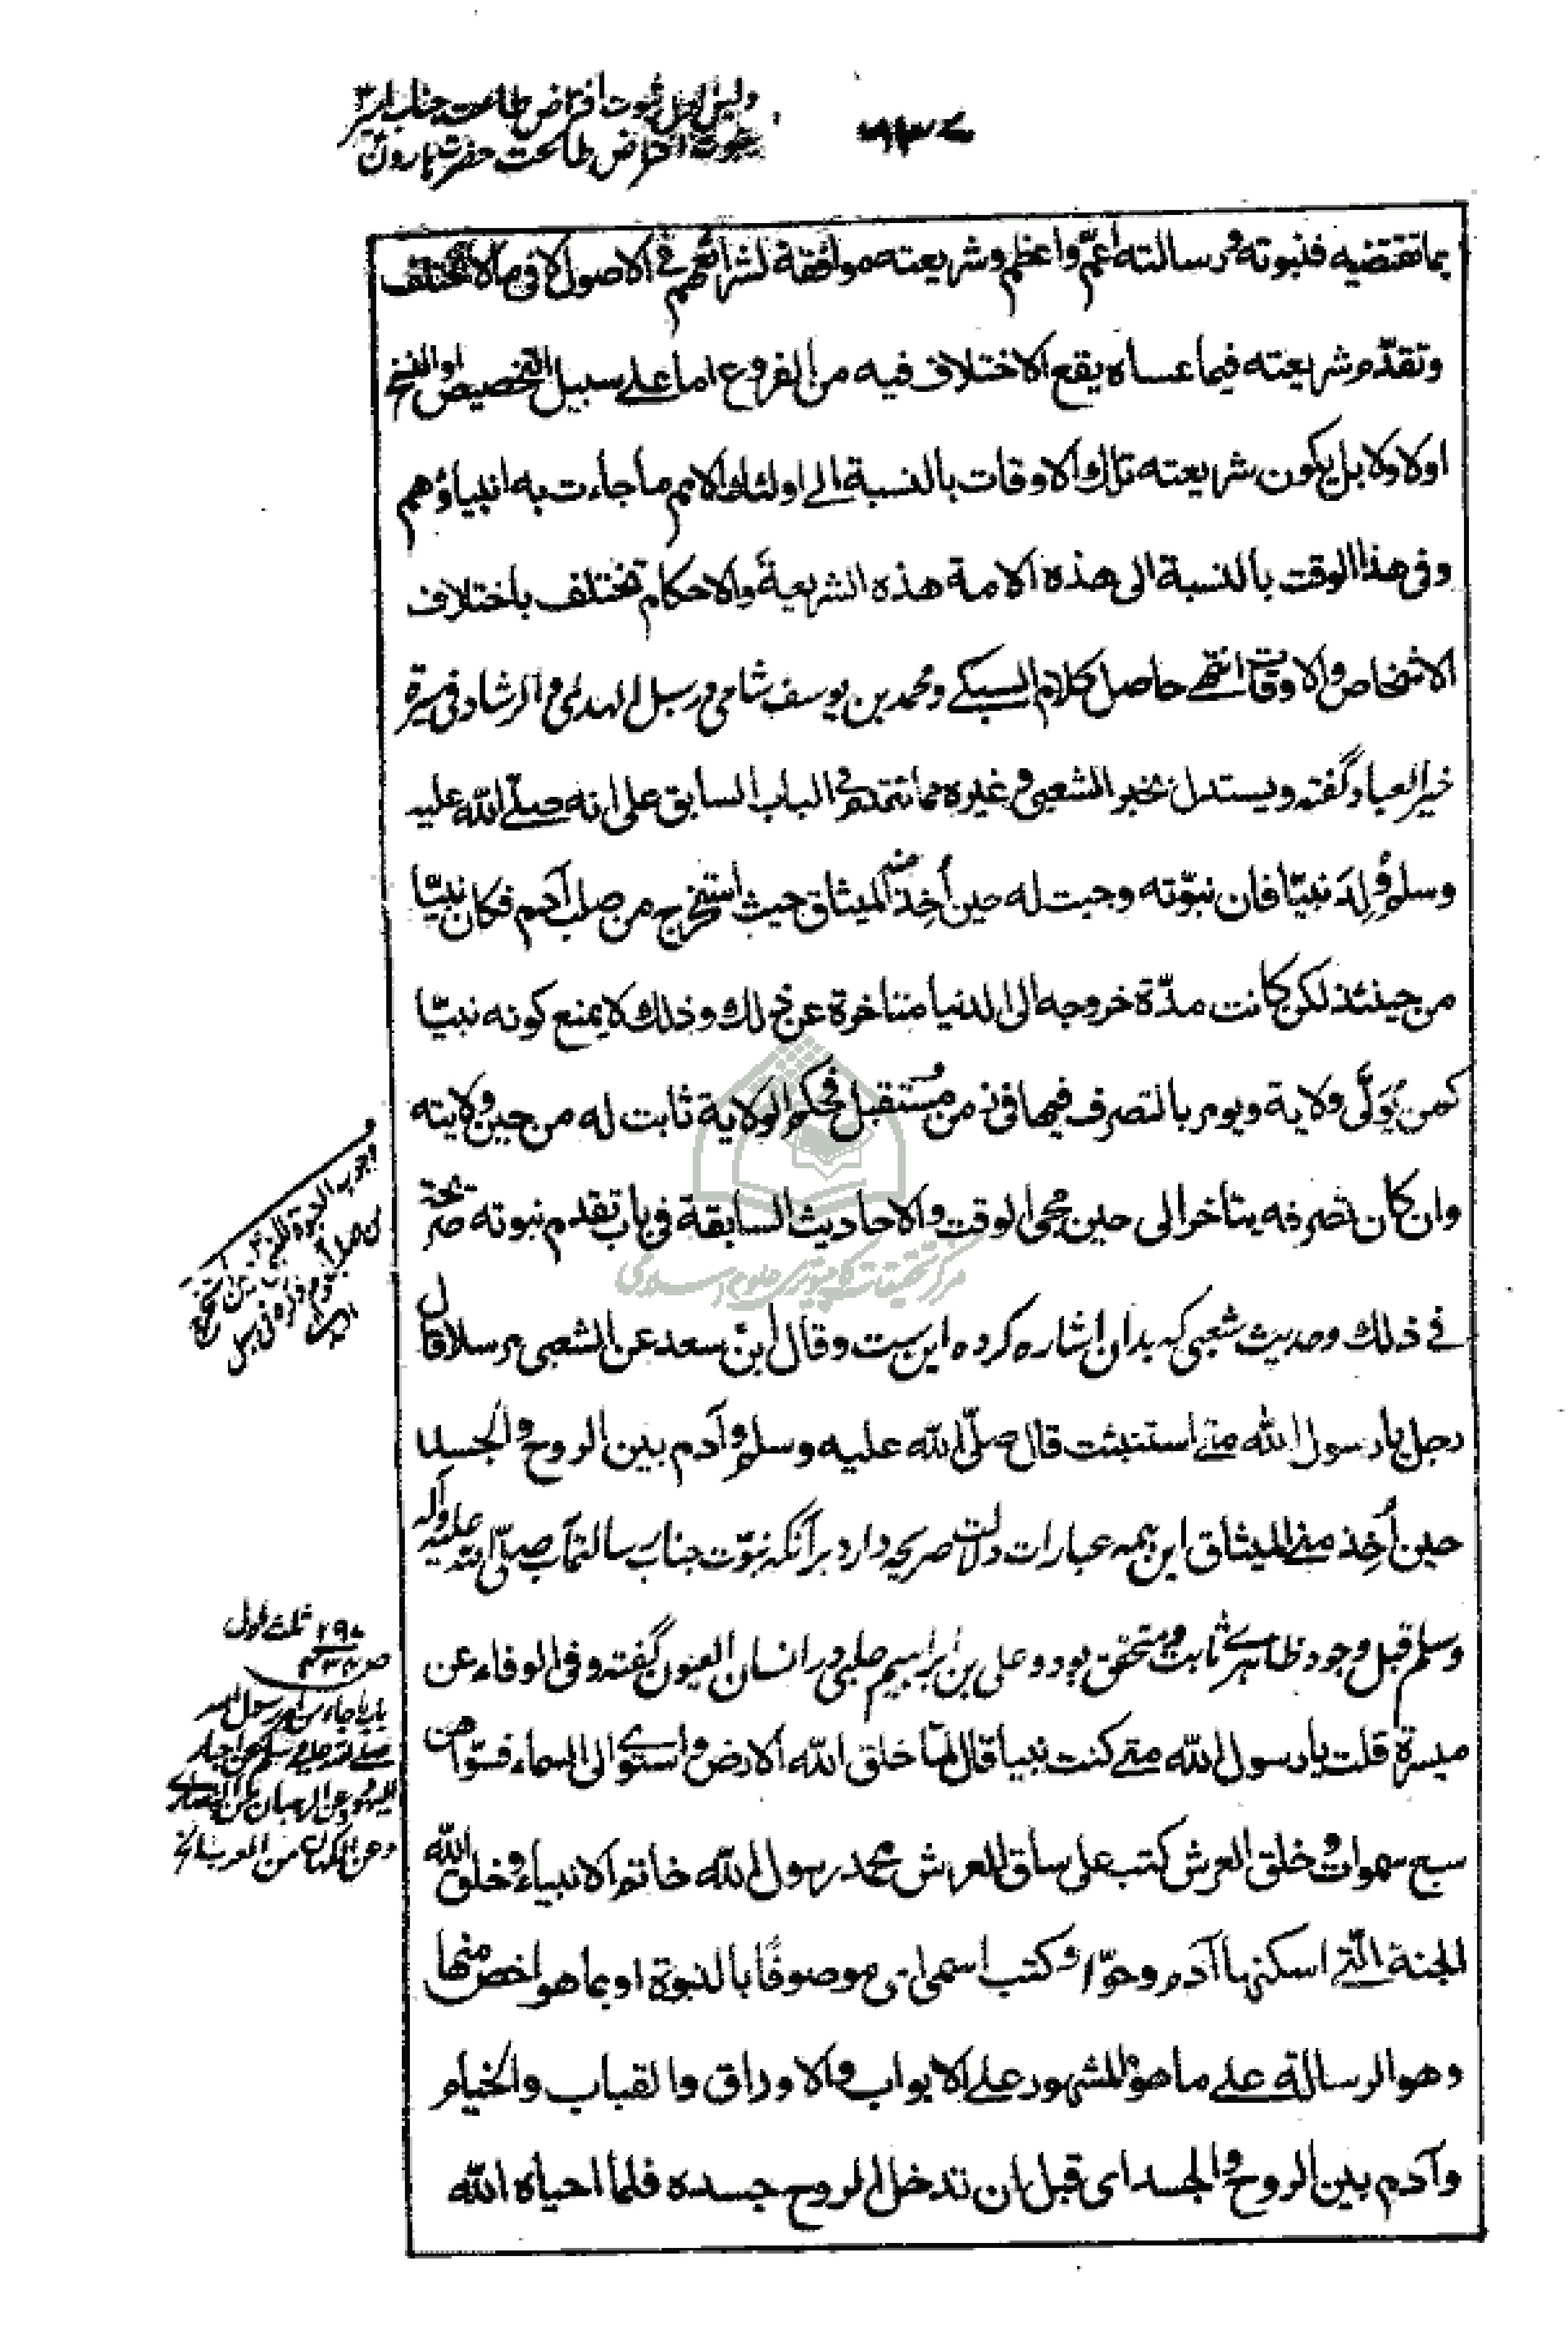 دلیل اول ثبوت افتراض طاعت جناب امیر
بثبوت افتراض طاعت حضرت هارون
بما تقتضیه فنبوته و رسالته اعمّ و اعظم و شریعته موافقة لشرائعهم فی الاصول لانها لا تختلف
و تقدّم شریعته فیما عساه یقع الاختلاف فیه من الفروع اما علی سبیل التخصیص او النسخ
اولا ولا بل یکون شریعته تلك الاوقات بالنسبة الی اولئك الامم ما جاءت به انبیاؤهم
و فی هذا الوقت بالنسبة الی هذه الامة هذه الشریعة والاحکام تختلف باختلاف
الاشخاص والاوقات انتهی حاصل کلام السبکی و محمد بن یوسف شامی در سبل الهدی والرشاد فی سیرة
خیر العباد گفته و یستدل بخبر الشعبی و غیره مما تقدم فی الباب السابق علی انه صلّی الله علیه
وسلم وُلِدَ نبیّا فان نبوّته وجبت له حین أُخِذ منه المیثاق حیث استخرج من صلب آدم فکان نبیّا
من حینئذ لکن کانت مدّة خروجه الی الدنیا متاخرة عن ذلك و ذلك لا یمنع کونه نبیّا
کمن یُوَلّی ولایة و یومر بالتصرف فیها فی زمن مُستقبل فحکم الولایة ثابت له من حین ولایته
وان کان تصرفه یتاخر الی حین مجی الوقت والاحادیث السابقة فی باب تقدم نبوته صریحة
فی ذلك و حدیث شعبی که بدان اشاره کرده این ست و قال ابن سعد عن الشعبی مرسلا قال
رجل یا رسول الله متی استنبئت قال صلّی الله علیه وسلم و آدم بین الروح والجسد
حین أُخِذ منی المیثاق این همه عبارات دلالت صریحه دارد بر آنکه نبوّت جناب رسالتمآب صلّی الله علیه وآله
وسلم قبل وجود ظاهری ثابت و متحقق بود و علی بن ابراهیم حلبی در انسان العیون گفته و فی الوفاء عن
میسرة قلت یا رسول الله متی کنت نبیا قال لمّا خلق الله الارض و استوی الی السماء فسوّاهن
سبع سموات و خلق العرش کتب علی ساق العرش محمد رسول الله خاتم الانبیاء و خلق الله
الجنة الّتی اسکنها آدم و حوّا و کتب اسمی ای موصوفًا بالنبوة او بما هو اخص منها
و هو الرسالة علی ما هو المشهور علی الابواب والاوراق والقباب والخیام
و آدم بین الروح والجسد ای قبل ان تدخل الروح جسده فلما احیاه الله
وجوب النبوة للنبی حین استخرج
من صلب آدم
۲۹۰ ثلث اول
باب ما جاء من امر رسول الله
صلی الله علیه وسلم عن احبار
الیهود وعن الرهبان من النصاری
وعن الکهان من العرب الخ
مرکز تحقیقات کامپیوتری علوم اسلامی